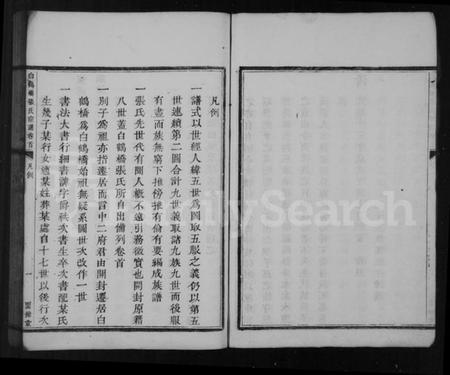 凡例
一譜式以世經人緯五世爲圖取五服之義仍以第五
世連續第二圖合計九世義取諸九族九世而後服
有盡而族無窮下推傍推有倫有要編成族譜
一張氏先世代有聞人概不遠引務徵實也開封原籍
八世蓋白鶴橋張氏所自出備列卷首
一別子爲祖亦指遷居而言中二府君由開封遷居白
鶴橋爲白鶴橋始祖無疑系圖世次改作一世
一書法大書行細書諱字爵秩次書生卒次書配某氏
生幾子某行女適某姓葬某處自十七世以後行次
白鶴橋張氏宗譜卷首
凡例
一
FamilySearch